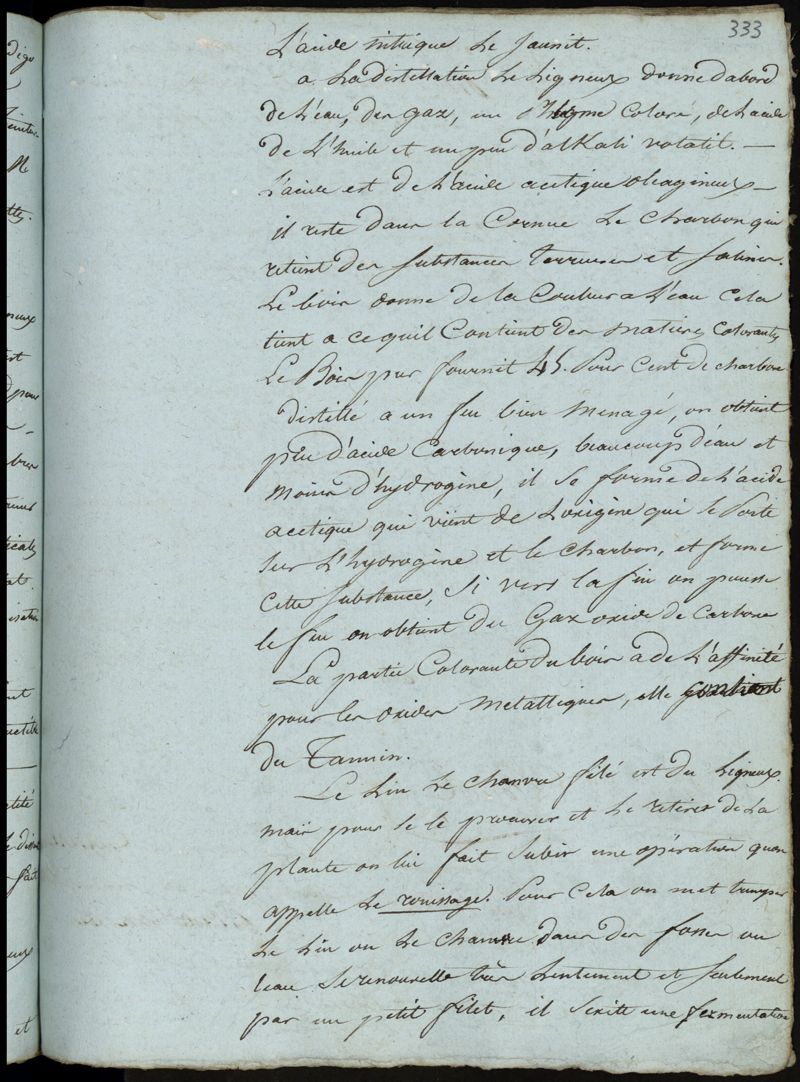 333
L'acide nitrique le jaunit.
a la distillation le ligneux donne d'abord
de l'eau, des gaz, un coloré, de l'acide
de l'huile et un peu d'alkali volatil. —
l'acide est de l'acide acetique oleagineux —
il reste dans la Cornue le charbon qui
retient des substances terreuses et salines.
Le bois donne de la Couleur a l'eau cela
tient a ce quil Contient des matieres colorantes
Le Bois pur fournit 45. Pour Cent de charbon
distillé a un feu bien menagé, on obtient
peu d'acide Carbonique, beaucoup d'eau et
moins d'hydrogène, il se forme de l'acide
acetique qui vient de l'oxigène qui se porte
sur l'hydrogène et le charbon, et forme
cette substance, si vers la fin on pousse
le feu on obtient du Gaz oxide de carbone
La partie Colorante du bois a de l'affinité
pour les oxides metalliques, elle contient
du Tannin.
Le Lin le chanvre filé est du ligneux.
mais pour se le procurer et le retirer de la
plante on lui fait subir une opération quon
appelle le rouissage. Pour cela on met tremper
le Lin ou le chanvre dans des fosses ou
l'eau se renouvelle très lentement et seulement
par un petit filet, il sexite une fermentation